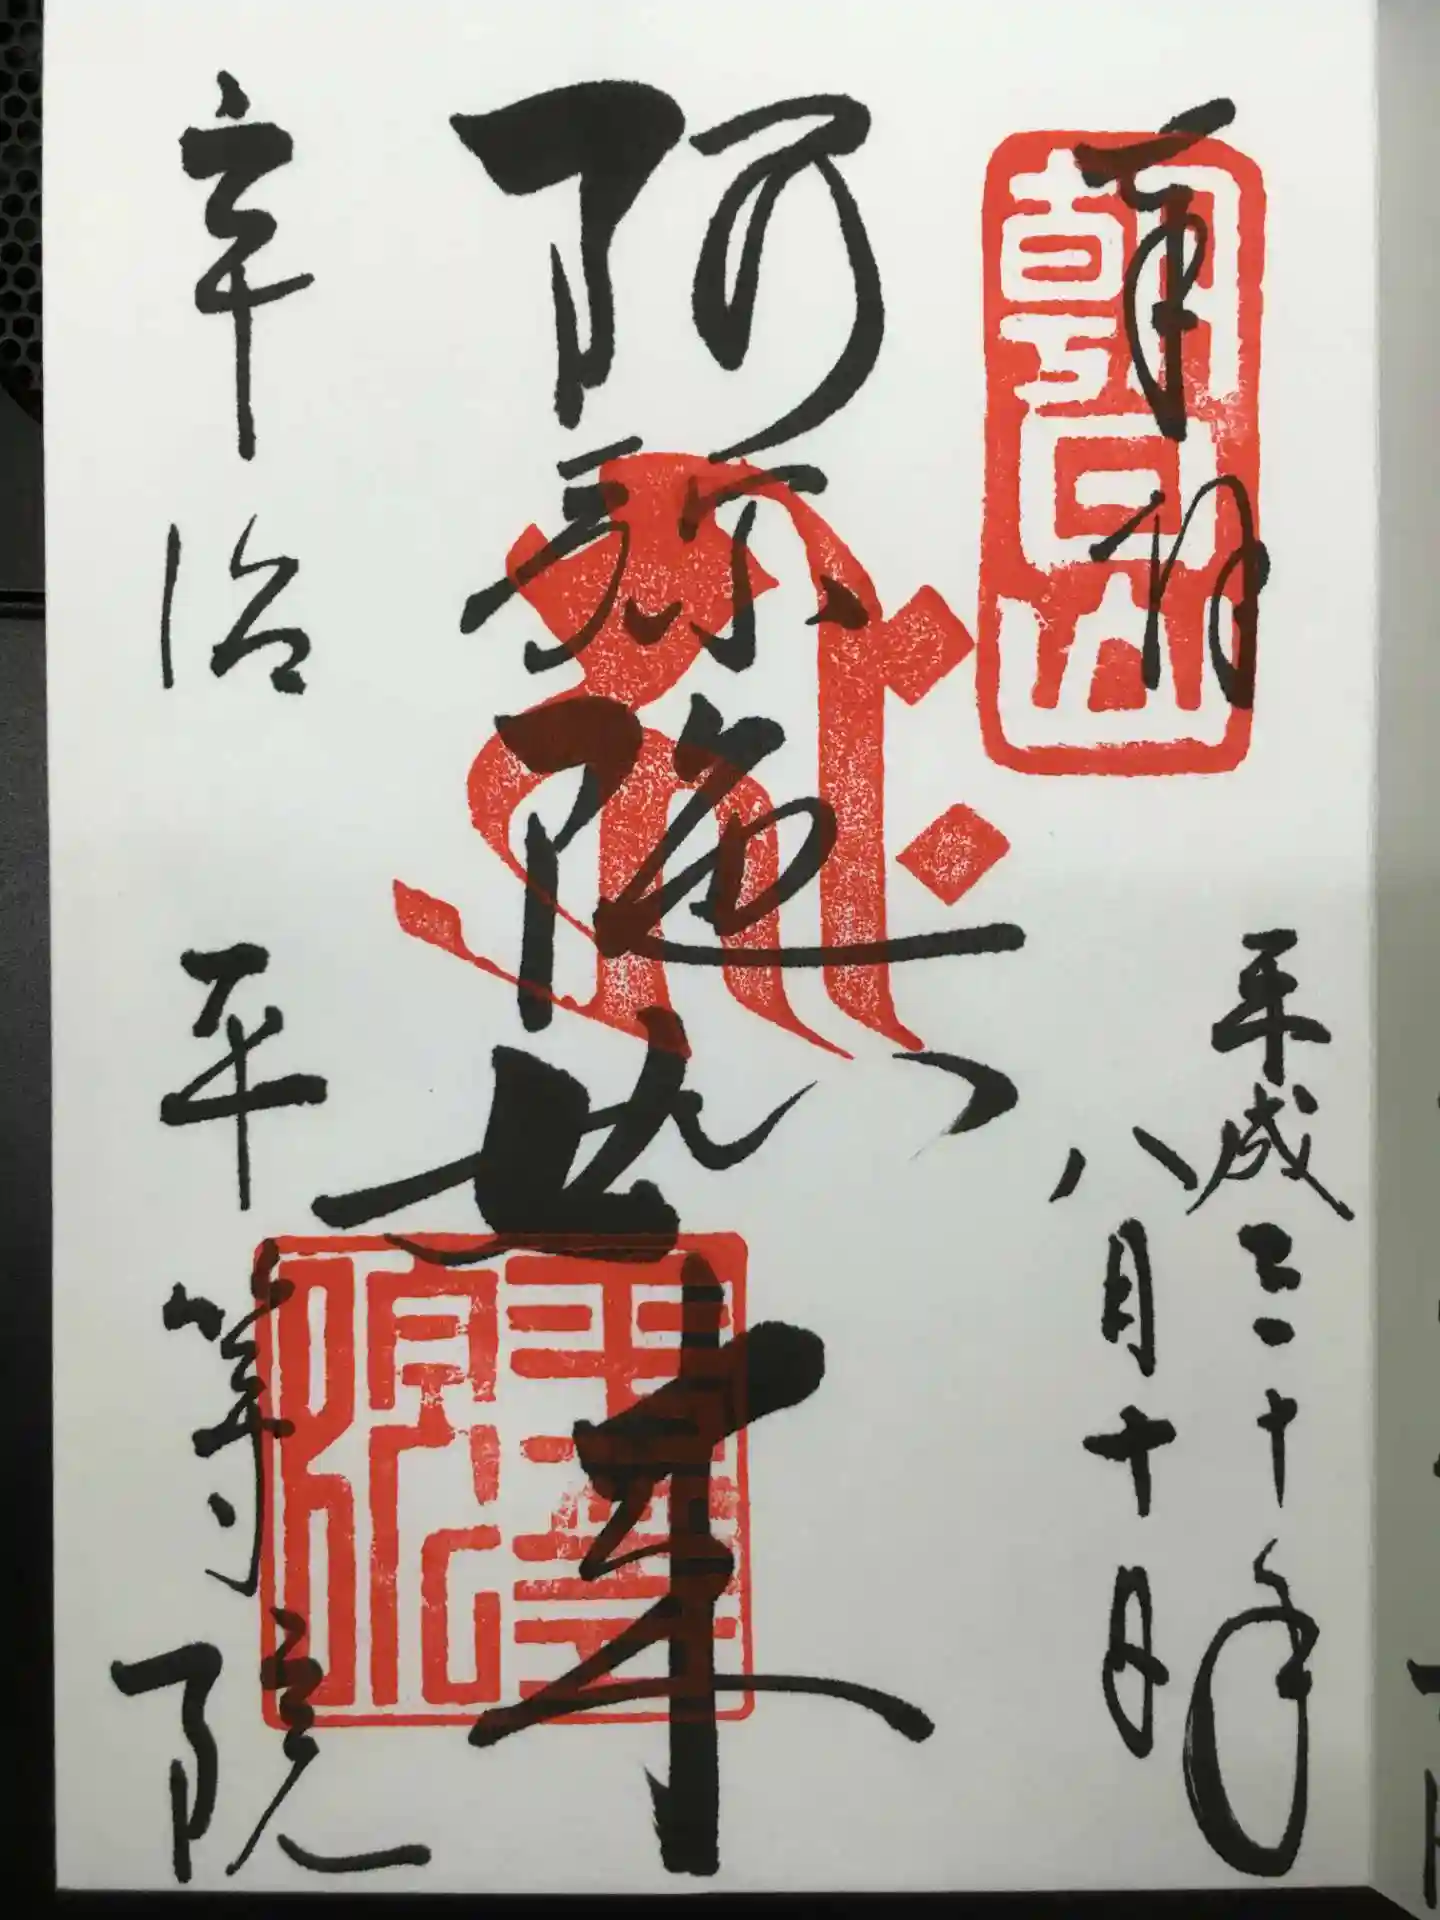 奉拝
朝日山
平成三十年
八月十日
阿弥陀如来
平等院
宇治 平等院